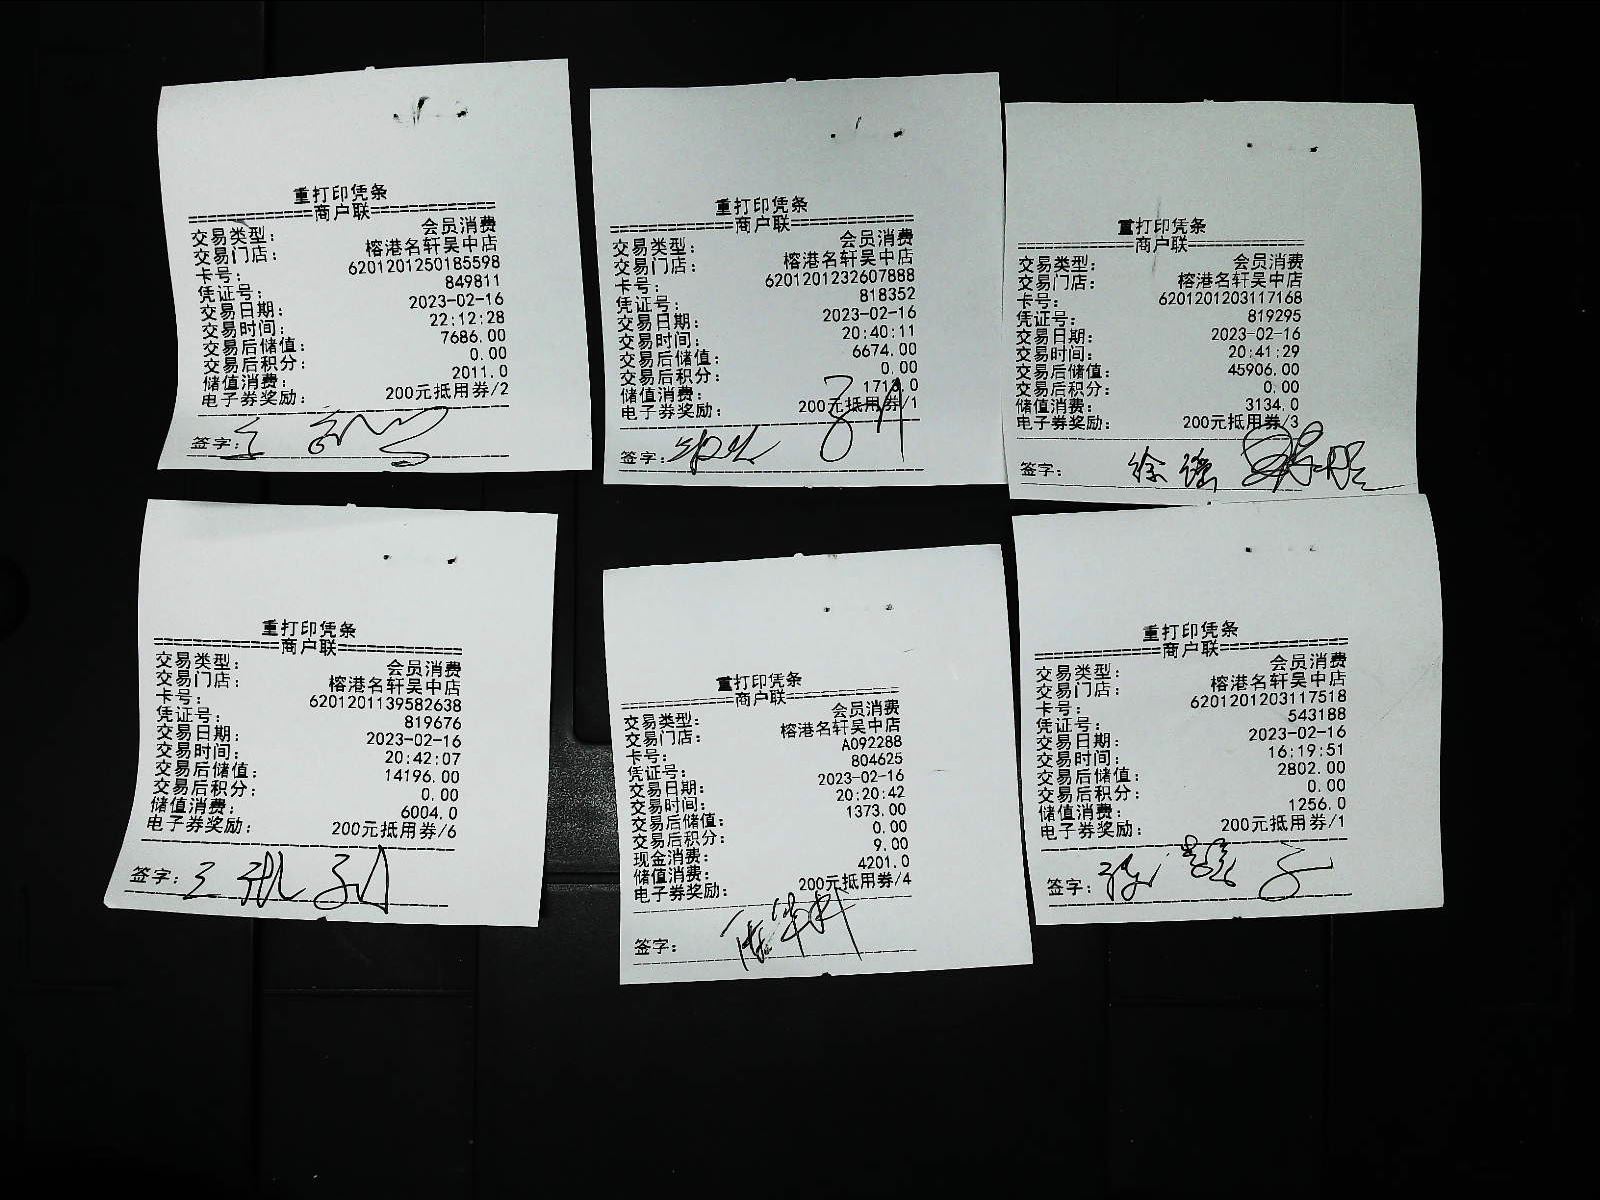 重打印凭条
==============商户联==============
交易类型: 会员消费
交易门店: 榕港名轩吴中店
卡号: 6201201250185598
凭证号: 849811
交易日期: 2023-02-16
交易时间: 22:12:28
交易后储值: 7686.00
交易后积分: 0.00
储值消费: 2011.0
电子券奖励: 200元抵用券/2
签字:
重打印凭条
==============商户联==============
交易类型: 会员消费
交易门店: 榕港名轩吴中店
卡号: 6201201232607888
凭证号: 818352
交易日期: 2023-02-16
交易时间: 20:40:11
交易后储值: 6674.00
交易后积分: 0.00
储值消费: 1713.0
电子券奖励: 200元抵用券/1
签字:
重打印凭条
==============商户联==============
交易类型: 会员消费
交易门店: 榕港名轩吴中店
卡号: 6201201203117168
凭证号: 819295
交易日期: 2023-02-16
交易时间: 20:41:29
交易后储值: 45906.00
交易后积分: 0.00
储值消费: 3134.0
电子券奖励: 200元抵用券/3
签字: 徐
重打印凭条
==============商户联==============
交易类型: 会员消费
交易门店: 榕港名轩吴中店
卡号: 6201201139582638
凭证号: 819676
交易日期: 2023-02-16
交易时间: 20:42:07
交易后储值: 14196.00
交易后积分: 0.00
储值消费: 6004.0
电子券奖励: 200元抵用券/6
签字:
重打印凭条
==============商户联==============
交易类型: 会员消费
交易门店: 榕港名轩吴中店
卡号: A092288
凭证号: 804625
交易日期: 2023-02-16
交易时间: 20:20:42
交易后储值: 1373.00
交易后积分: 0.00
现金消费: 9.00
储值消费: 4201.0
电子券奖励: 200元抵用券/4
签字:
重打印凭条
==============商户联==============
交易类型: 会员消费
交易门店: 榕港名轩吴中店
卡号: 6201201203117518
凭证号: 543188
交易日期: 2023-02-16
交易时间: 16:19:51
交易后储值: 2802.00
交易后积分: 0.00
储值消费: 1256.0
电子券奖励: 200元抵用券/1
签字: